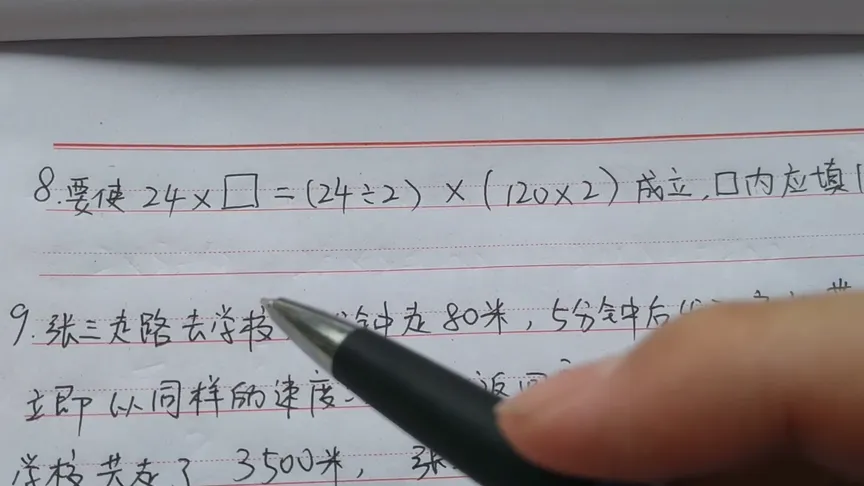 8.要使 24×□=(24÷2)×(120×2)成立,□内应填
9.张三走路去学校 分钟走80米,5分钟后
立即以同样的速度 返回
学校共走了 3500米, 张